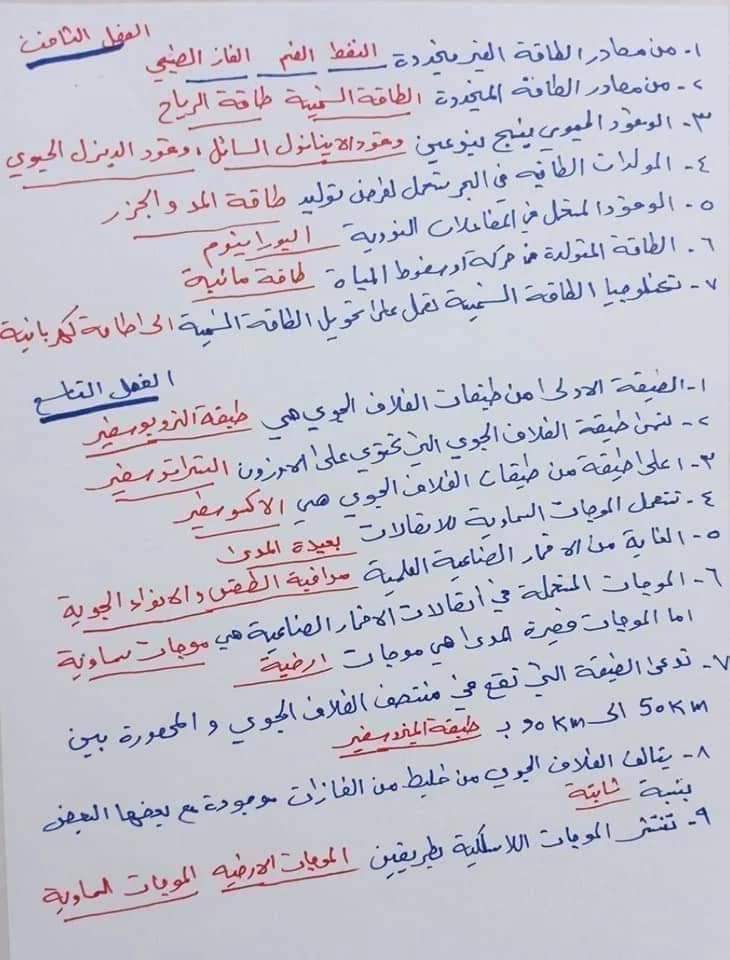 الفصل الثامن
١- من مصادر الطاقة الغير متجددة النفط الفحم الغاز الطبيعي
٢- من مصادر الطاقة المتجددة الطاقة الشمسية طاقة الرياح
٣- الوقود الحيوي ينتج بنوعين وقود الايثانول السائل ، وقود الديزل الحيوي
٤- المولدات الطافيه في البحر تستعمل لغرض توليد طاقة المد والجزر
٥- الوقود المستعمل في المفاعلات النووية اليورانيوم
٦- الطاقة المتولدة من حركة او سقوط المياة طاقة مائية
٧- تكنلوجيا الطاقة الشمسية تعمل على تحويل الطاقة الشمسية الى طاقة كهربائية
الفصل التاسع
١- الطبقة الاولى من طبقات الغلاف الجوي هي طبقة التروبوسفير
٢- تسمى طبقة الغلاف الجوي التي تحتوي على الاوزون الستراتوسفير
٣- اعلى طبقة من طبقات الغلاف الجوي هي الاكسوسفير
٤- تستعمل الموجات السماوية للاتصالات بعيدة المدى
٥- الغاية من الاقمار الصناعية العلمية مراقبة الطقس والانواء الجوية
٦- الموجات المستعملة في اتصالات الاقمار الصناعية هي موجات سماوية
اما الموجات قصيرة المدى هي موجات ارضية
٧- تدعى الطبقة التي تقع في منتصف الغلاف الجوي و المحصورة بين
50KM الى 90KM بـ طبقة الميزوسفير
٨- يتالف الغلاف الجوي من خليط من الغازات موجودة مع بعضها البعض
بنسبة ثابتة
٩- تنتشر الموجات اللاسلكية بطريقتين الموجات الارضيه الموجات السماوية